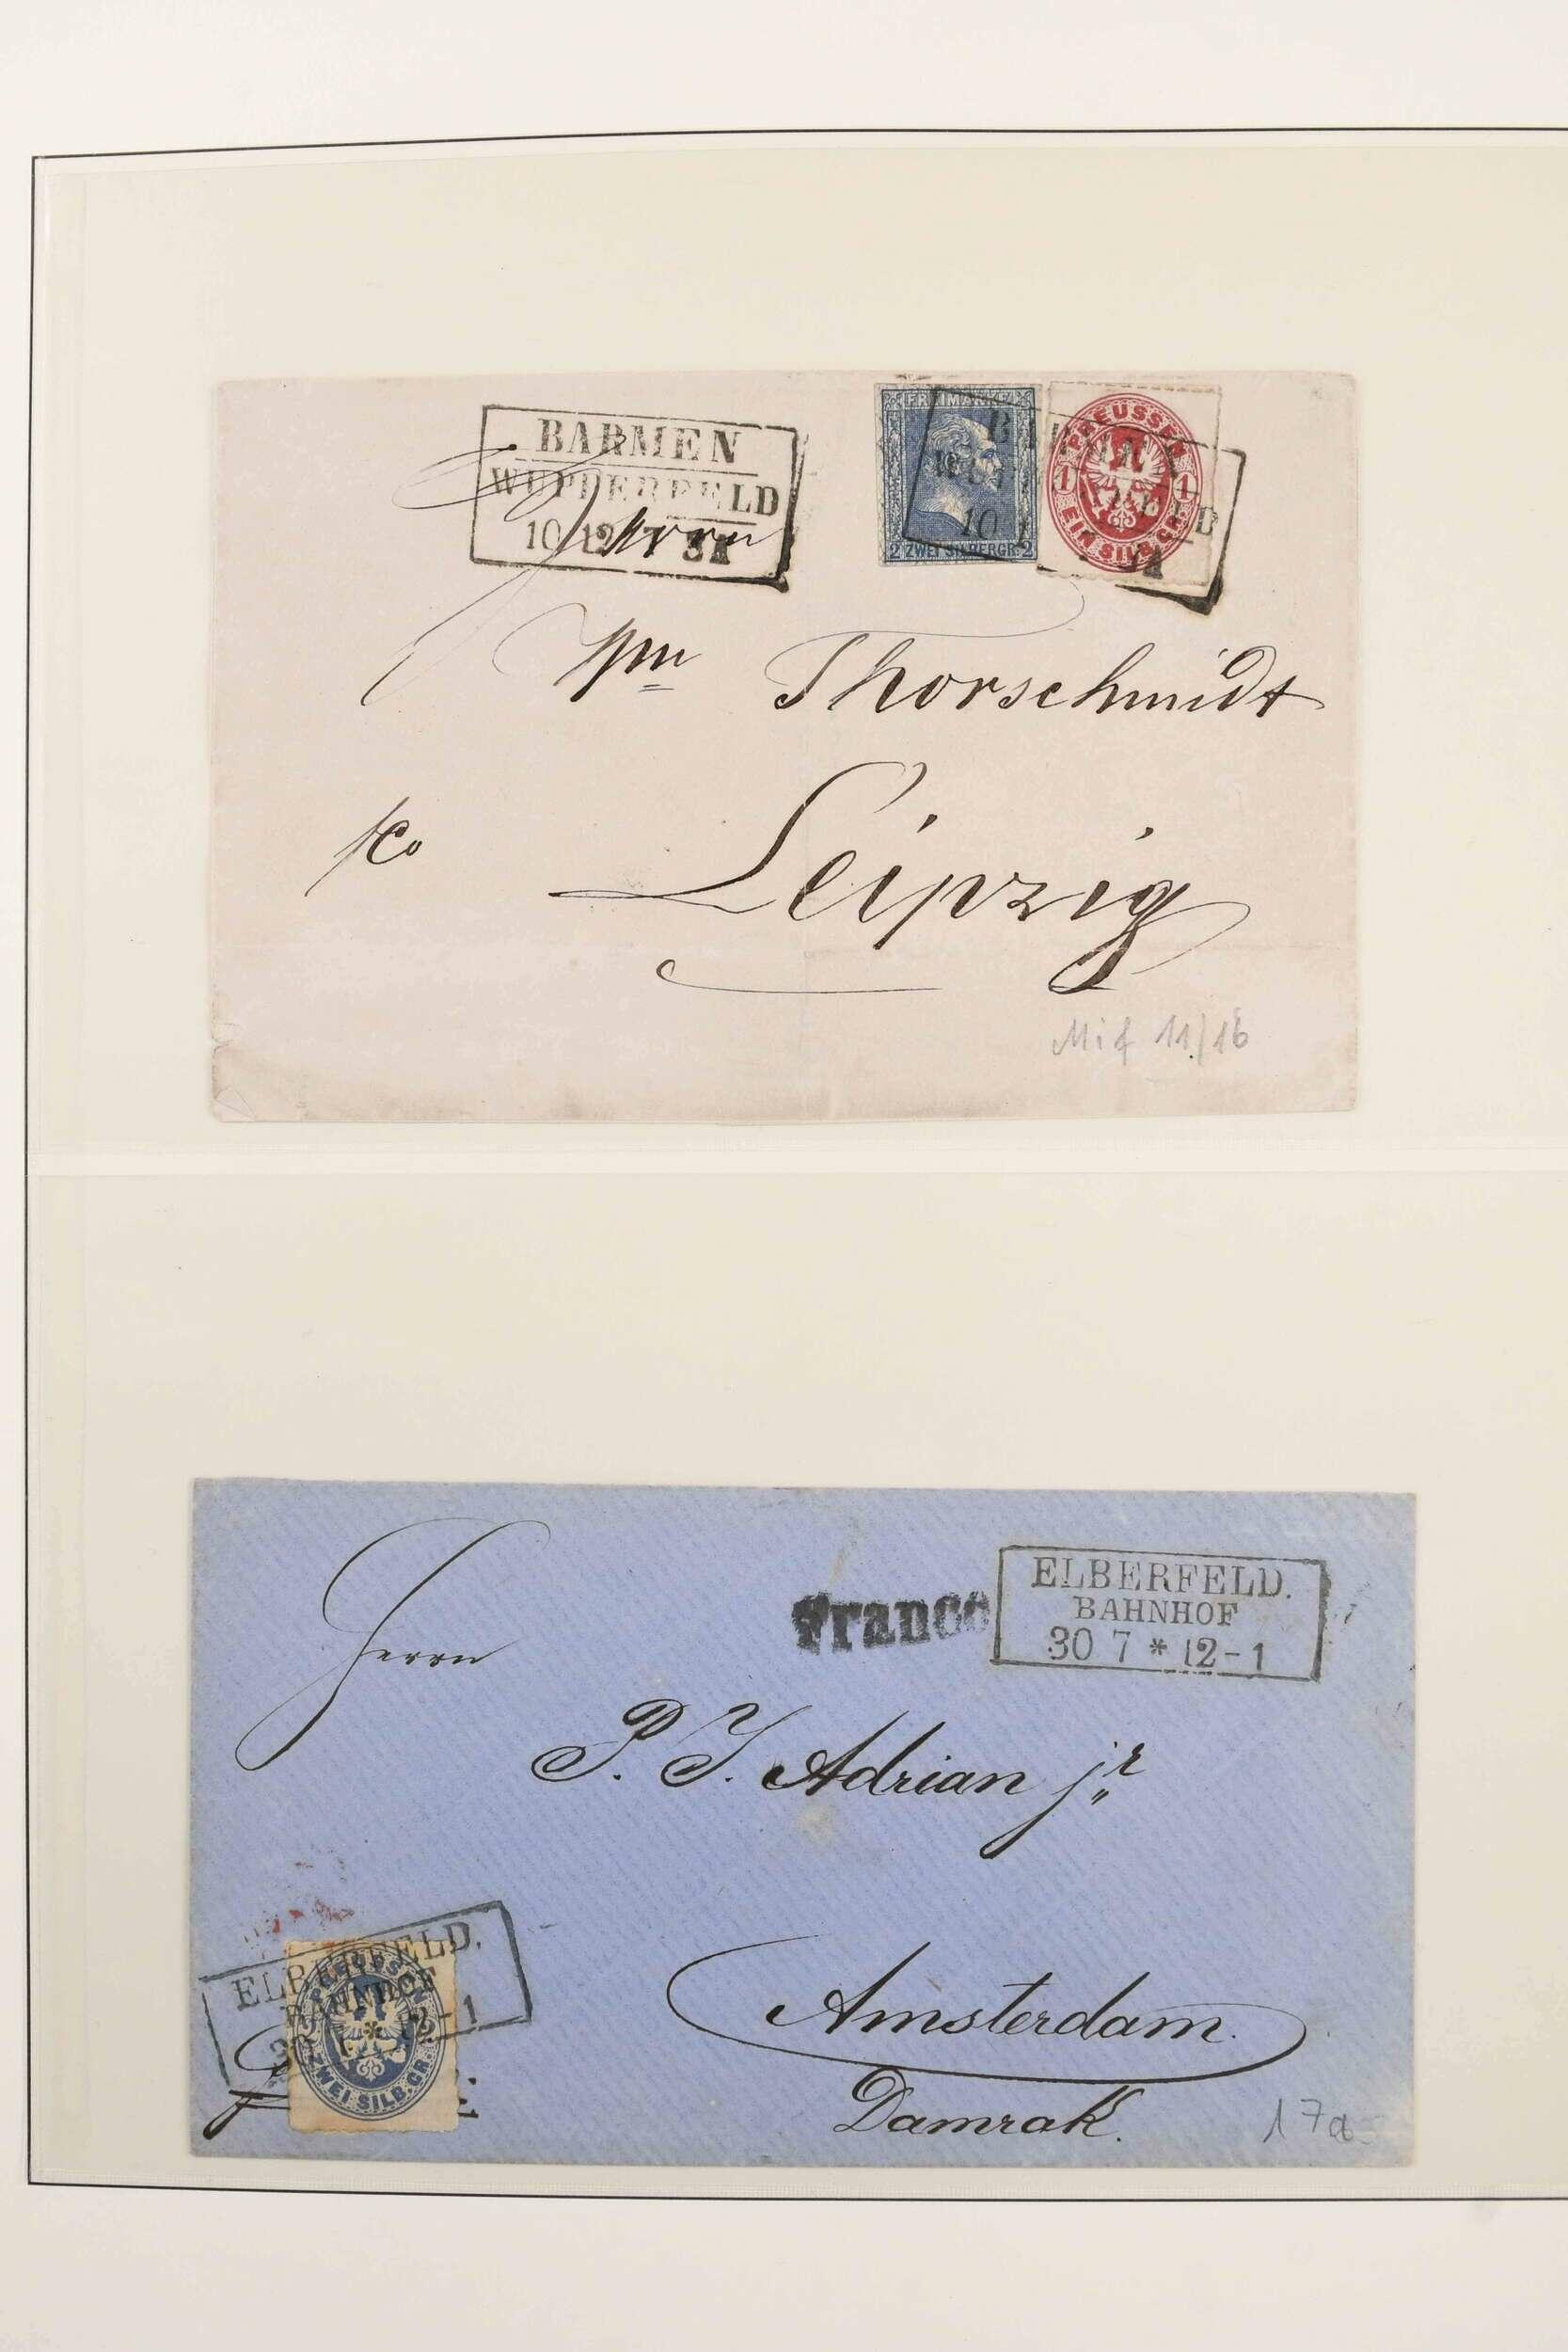 BARMEN
WUPPERFELD
10 12
FREIMARKE
2 ZWEI SILBERGR. 2
PREUSSEN
1 1
EIN SILB.GR.
Herrn
Wm Thorschmidt
fco
Leipzig
Mif 11/16
Franco
ELBERFELD.
BAHNHOF
30 7 * 12-1
Herrn
P. J. Adrian jr
ELBERFELD.
BAHNHOF
30 7 * 12-1
PREUSSEN
ZWEI SILB.GR.
Amsterdam.
Damrak.
17a